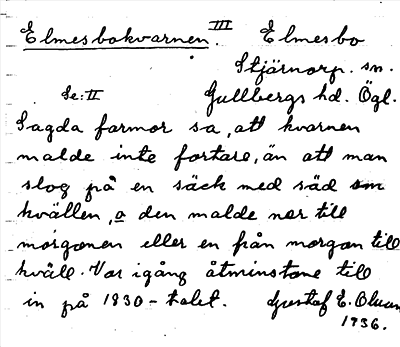 Elmesbokvarnen. III Elmesbo
Stjärnorp. sn.
Se: II Gullbergs hd. Ögl.
Sagda farmor sa, att kvarnen
malde inte fortare, än att man
slog på en säck med säd om
kvällen, o den malde ner till
morgonen eller en från morgon till
kväll. Var igång åtminstone till
in på 1830-talet. Gustaf E. Olsson
1936.